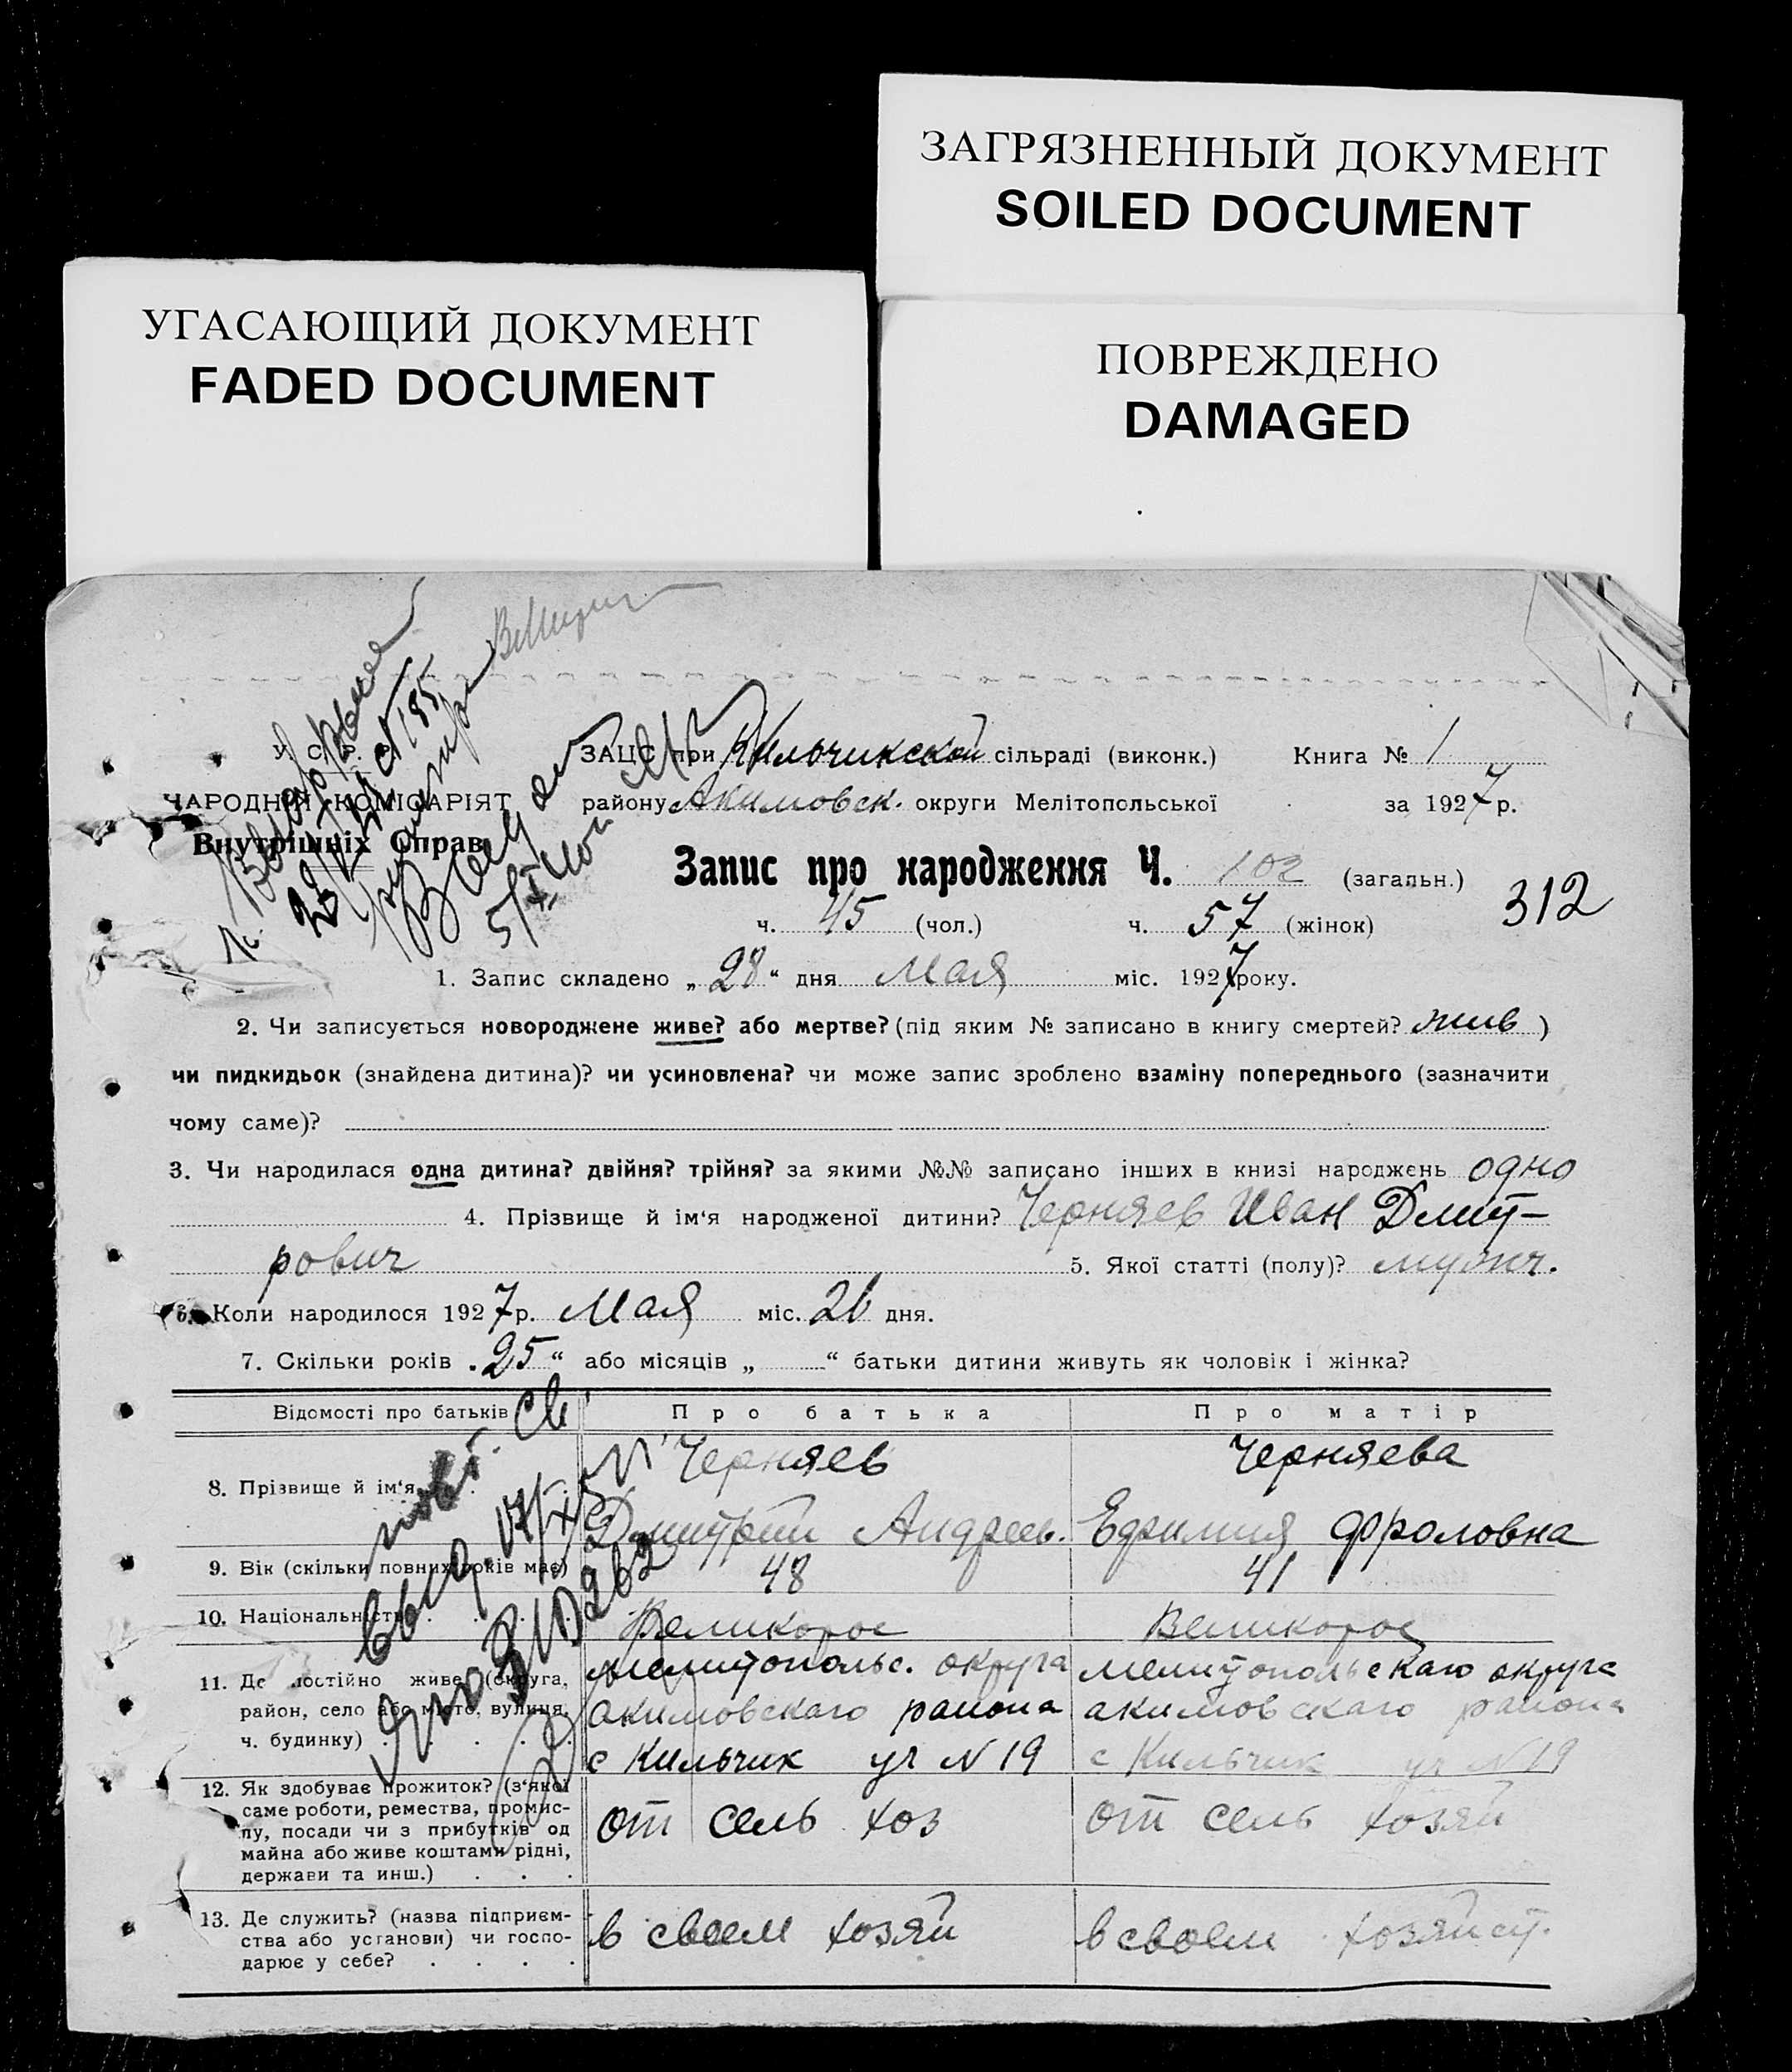 ЗАГРЯЗНЕННЫЙ ДОКУМЕНТ
SOILED DOCUMENT
УГАСАЮЩИЙ ДОКУМЕНТ
FADED DOCUMENT
ПОВРЕЖДЕНО
DAMAGED
У. С. Р. Р. ЗАЦС при Кильчикской сільраді (виконк.) Книга № 1
НАРОДНІЙ КОМІСАРІЯТ району Акимовск. округи Мелітопольської за 1927 р.
Внутрішніх Справ
Запис про народження Ч. 102 (загальн.)
312
ч. 45 (чол.) ч. 57 (жінок)
1. Запис складено „28“ дня Мая міс. 1927 року.
2. Чи записується новороджене живе? або мертве? (під яким № записано в книгу смертей? жив )
чи пидкидьок (знайдена дитина)? чи усиновлена? чи може запис зроблено взаміну попереднього (зазначити
чому саме)?
3. Чи народилася одна дитина? двійня? трійня? за якими №№ записано інших в книзі народжень одно
4. Прізвище й ім‘я народженої дитини? Черняев Иван Дмит-
рович 5. Якої статті (полу)? мужч.
6. Коли народилося 1927 р. Мая міс. 26 дня.
7. Скільки років „25“ або місяців „ “ батьки дитини живуть як чоловік і жінка?
Відомості про батьків Про батька Про матір
Черняев Черняева
8. Прізвище й ім‘я
Дмитрий Андреев. Ефимия Фроловна
9. Вік (скільки повних років має) 48 41
10. Національність Великорос Великорос
11. Де постійно живе (округа, Мелитопольс. округа Мелитопольскаго округа
район, село або місто, вулиця, Акимовскаго района акимовскаго района
ч. будинку) с Кильчик уч N 19 с Кильчик уч N 19
12. Як здобуває прожиток? (з‘якої
саме роботи, ремества, промис- от сель хоз от сель хозяй
лу, посади чи з прибутків од
майна або живе коштами рідні,
держави та инш.)
13. Де служить? (назва підприєм-
ства або установи) чи госпо- в своем хозяй в своем хозяйст.
дарює у себе?